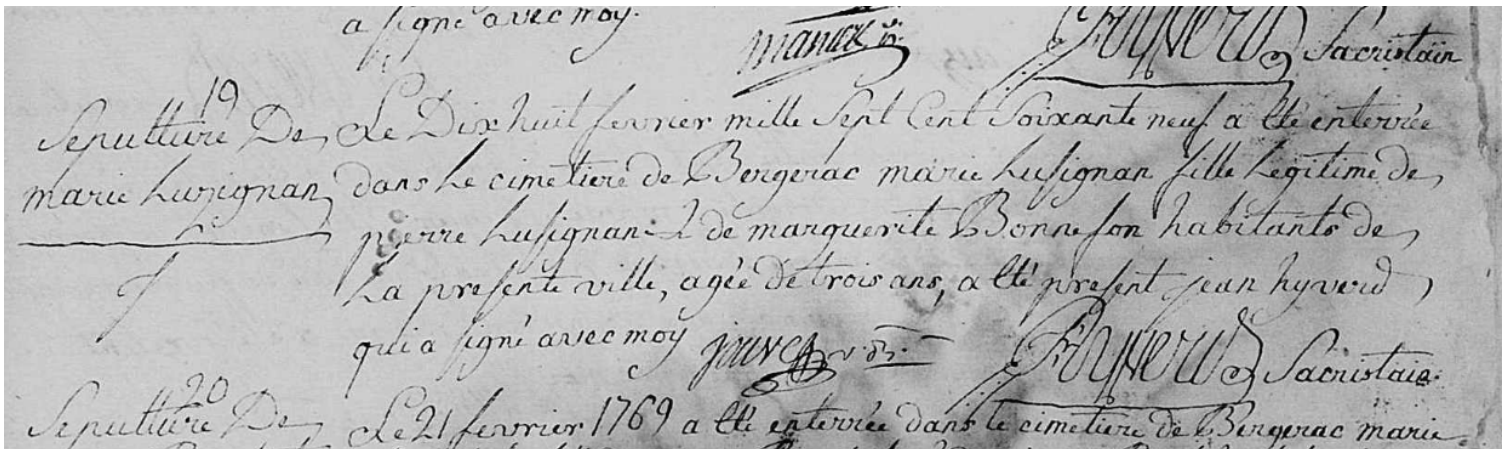 a signé avec moy.
manet vic. Hyverd Sacristain
19
Sepulture De
marie Lusignan
Le Dix huit fevrier mille Sept Cent Soixante neuf a été enterrée
dans Le cimetiere de Bergerac marie Lusignan fille Legitime de
pierre Lusignan & de marguerite Bonneson habitants de
La presente ville, agée de trois ans, a été present jean hyverd
qui a signé avec moy jouvet v. Hyverd Sacristain
20
Sepulture De
Le 21 fevrier 1769 a été enterrée dans le cimetiere de Bergerac marie